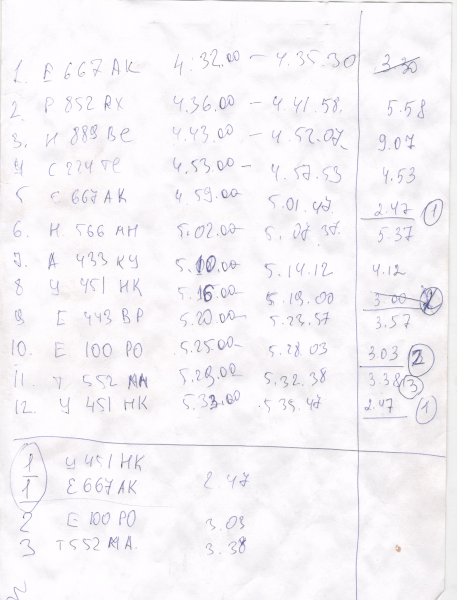 1. Е 667 АК 4.32.00 – 4.35.30 3.30
2. Р 852 RX 4.36.00 – 4.41.58. 5.58
3. Н 889 ВС 4.43.00 – 4.52.07. 9.07
4 С 224 ТС 4.53.00 – 4.57.53 4.53
5 Е 667 АК 4.59.00 5.01.47 2.47 1
6. Н 566 АН 5.02.00 5.07.37. 5.37
7. А 433 КУ 5.10.00 5.14.12 4.12
8 У 451 НК 5.16.00 5.19.00 3.00 2
9 Е 443 ВР 5.20.00 5.23.57 3.57
10. Е 100 РО 5.25.00 5.28.03 3.03 2
11. Т 552 МА 5.29.00 5.32.38 3.38 3
12. У 451 НК 5.33.00 5.35.47 2.47 1
1 У 451 НК
1 Е 667 АК 2.47
2 Е 100 РО 3.03
3 Т 552 МА. 3.38